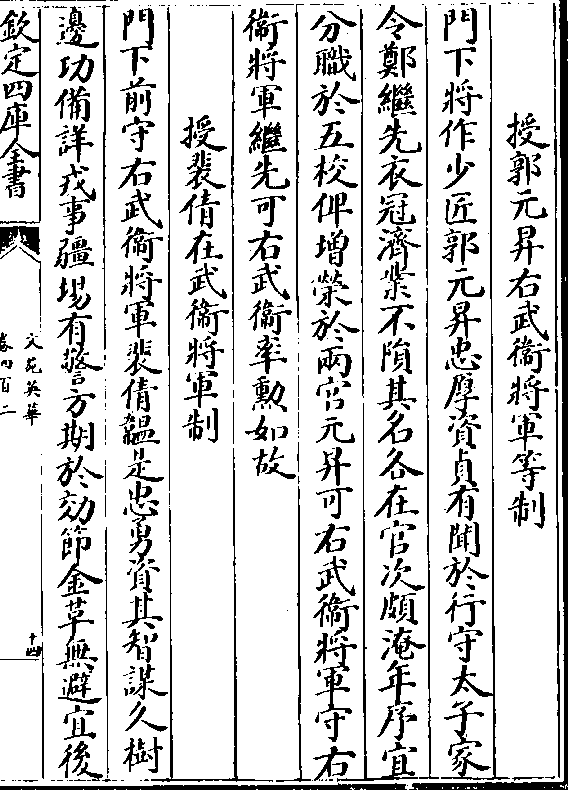 授郭元昇右武衛將軍等制
門下將作少匠郭元昇忠厚資貞有聞於行守太子家
令鄭繼先衣冠濟業不隕其名各在官次頗淹年序宜
分職於五校俾增榮於兩官元昇可右武衛將軍守右
衛將軍繼先可右武衛率勲如故
授裴倩在武衛將軍制
門下前守右武衛將軍裴倩韞是忠勇資其智謀久樹
邊功備詳戎事疆埸有警方期於効節金草無避宜後
欽定四庫全書
文苑英華
卷四百二
十四